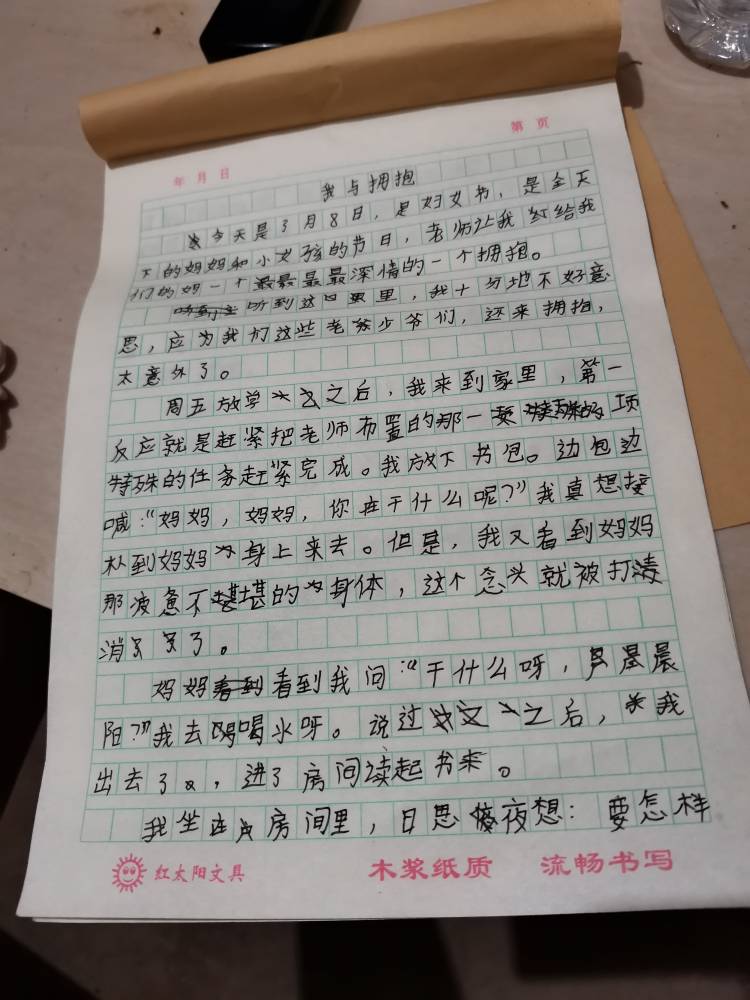 第 页
年 月 日
我与拥抱
今天是3月8日，是妇女书，是全天
下的妈妈和小女孩的节日，老师让我们给我
们的妈一个最最最最深情的一个拥抱。
听到这里，我十分地不好意
思，应为我们这些老爷少爷们，还来拥抱，
太意外了。
周五放学之后，我来到家里，第一
反应就是赶紧把老师布置的那一项
特殊的任务赶紧完成。我放下书包。边包边
喊：“妈妈，妈妈，你在干什么呢？”我真想接
朴到妈妈身上来去。但是，我又看到妈妈
那疲惫不堪的身体，这个念头就被打
消了。
妈妈看到我问：“干什么呀，晨
阳？”我去喝水呀。说过之后，我
出去了，进了房间读起书来。
我坐在房间里，日思夜想：要怎样
红太阳文具 木浆纸质 流畅书写